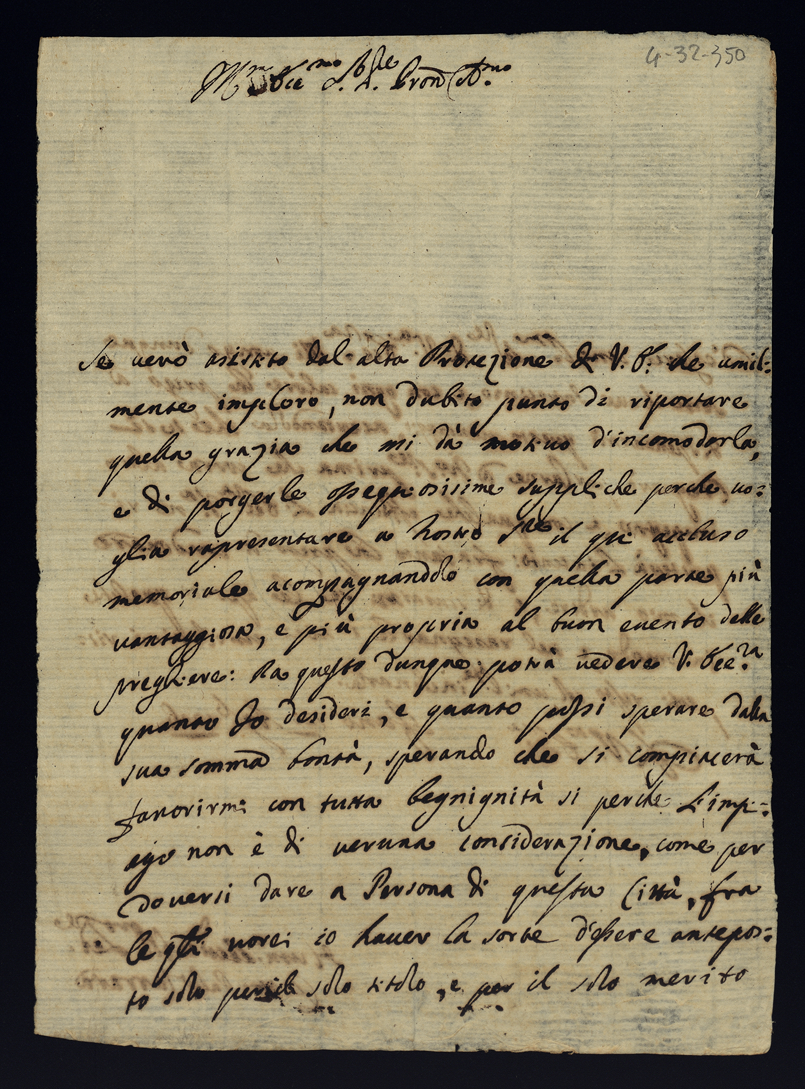 4-32-350
Ecc.mo S.re Pron
Se verò asistito dal alta Protezione di V. E. che umil=
mente imploro, non dubito punto di riportare
quella grazia che mi dà motivo d'incomodarla,
e di porgerle ossequiosisime suppliche perche vo=
glia rapresentare a Nostro S.re il qui accluso
memoriale acompagnandolo con quella parte più
vantaggiosa, e più propria al buon evento delle
preghiere: Da questo dunque potrà vedere V. Ecc.za
quanto Io desideri, e quanto possi sperare dalla
sua somma bontà, sperando che si compiacerà
favorirmi con tutta begnignità si perche L'imp=
ego non è di veruna considerazione, come per
doversi dare a Persona di questa Città, fra
le qli vorei io haver la sorte d'essere antepos=
to solo per il solo titolo, e per il solo merito